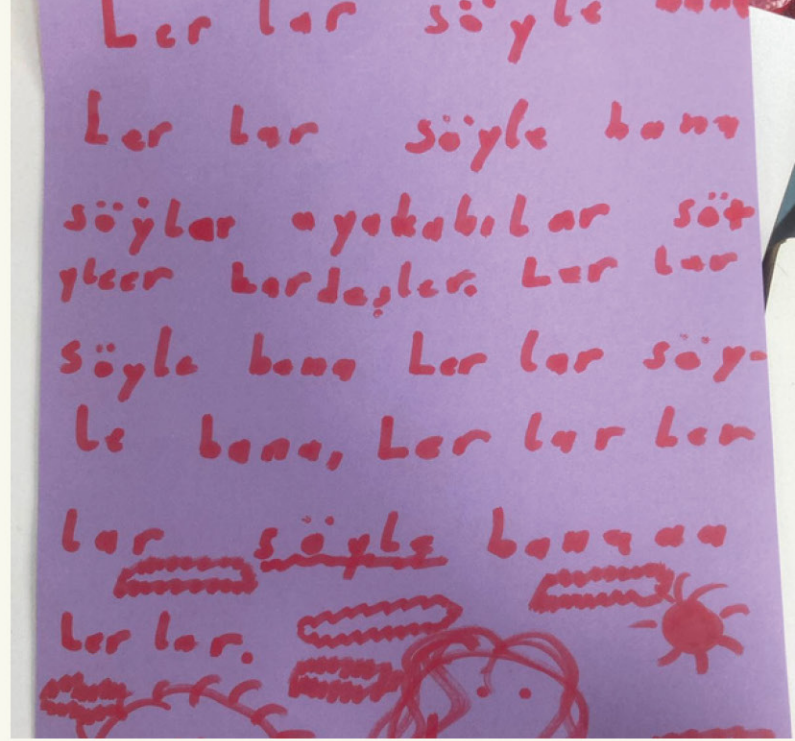 Ler lar söyle bana
Ler lar söyle bana
söylar ayakabılar söy
yleer kardeşler. Ler lar
söyle bana Ler lar söy-
le bana, Ler lar Ler
lar söyle banaaaa
Ler lar.